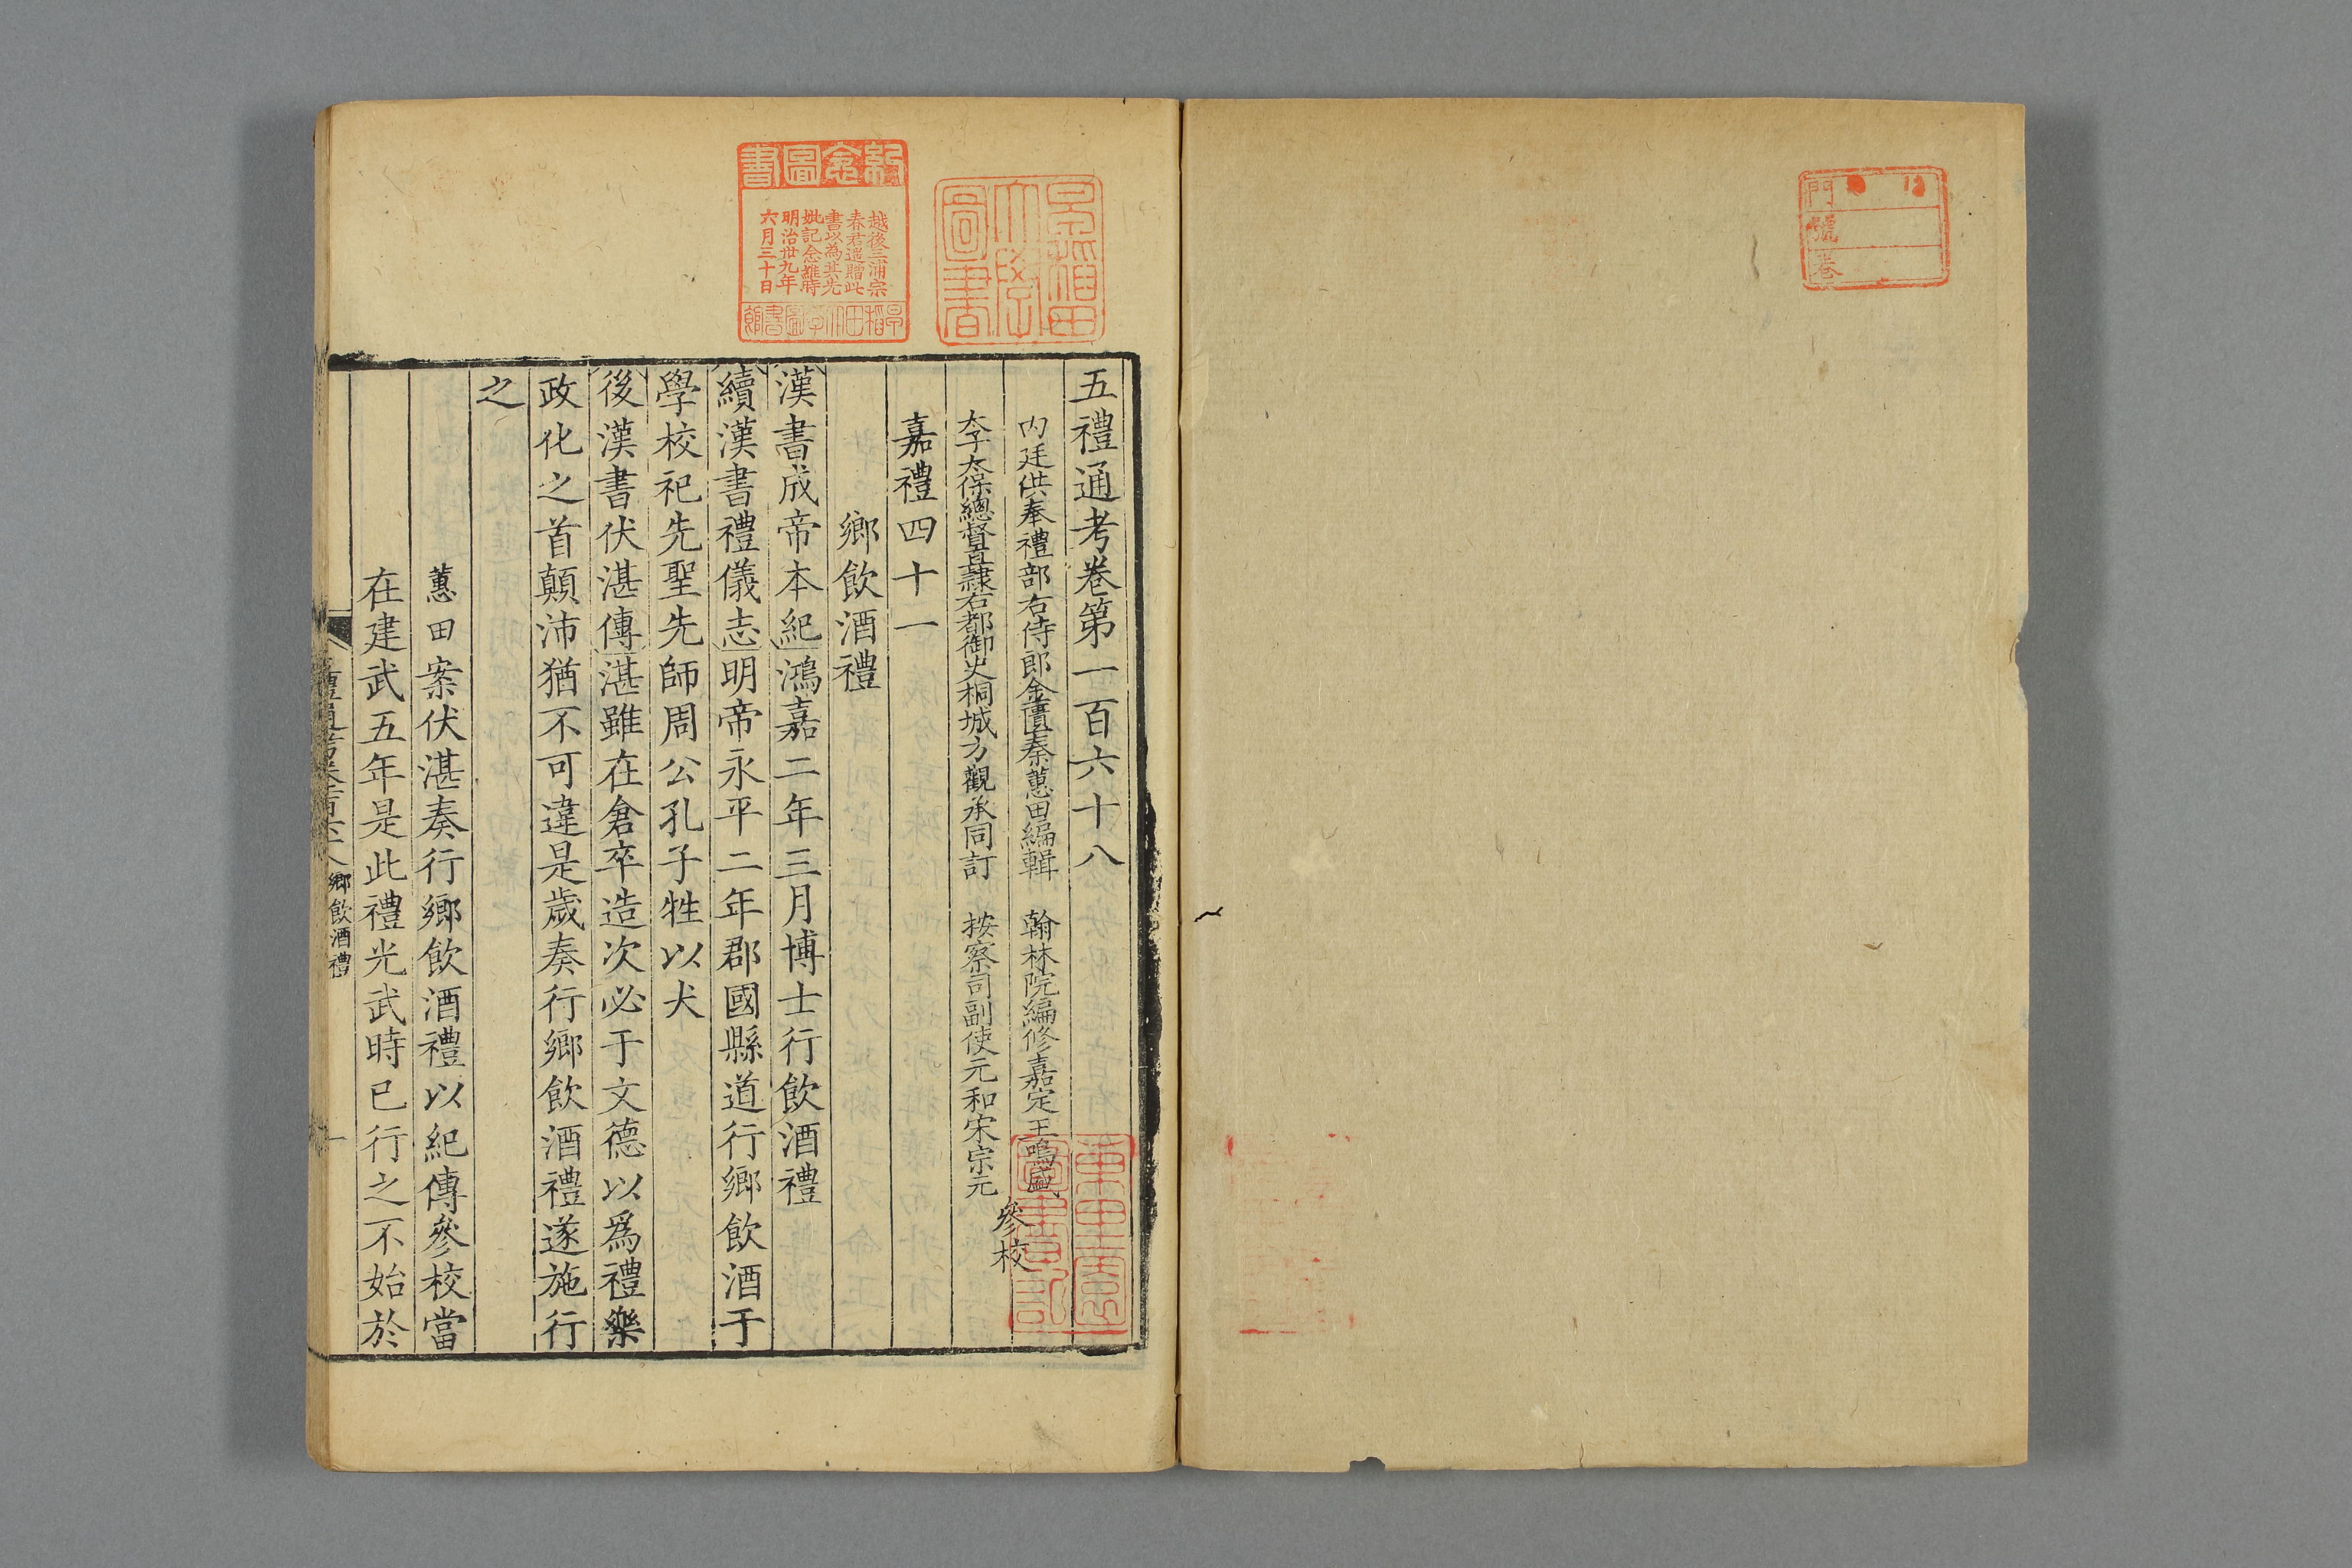 門
號
卷
早稲田
大學
圖書
紀念圖書
越後三浦宗
春君遥贈此
書以為其先
妣記念維時
明治卅九年
六月三十日
早稲田大学圖書館
五禮通考卷第一百六十八
内廷供奉禮部右侍郎金匱秦蕙田編輯 翰林院編修嘉定王鳴盛
太子太保總督直隸右都御史桐城方觀承同訂 按察司副使元和宋宗元
參校
嘉禮四十一
鄉飲酒禮
漢書成帝本紀鴻嘉二年三月博士行飲酒禮
續漢書禮儀志明帝永平二年郡國縣道行鄉飲酒于
學校祀先聖先師周公孔子牲以犬
後漢書伏湛傳湛雖在倉卒造次必于文德以爲禮樂
政化之首顛沛猶不可違是歲奏行鄉飲酒禮遂施行
之
蕙田案伏湛奏行鄉飲酒禮以紀傳參校當
在建武五年是此禮光武時已行之不始於
鄉飲酒禮
一